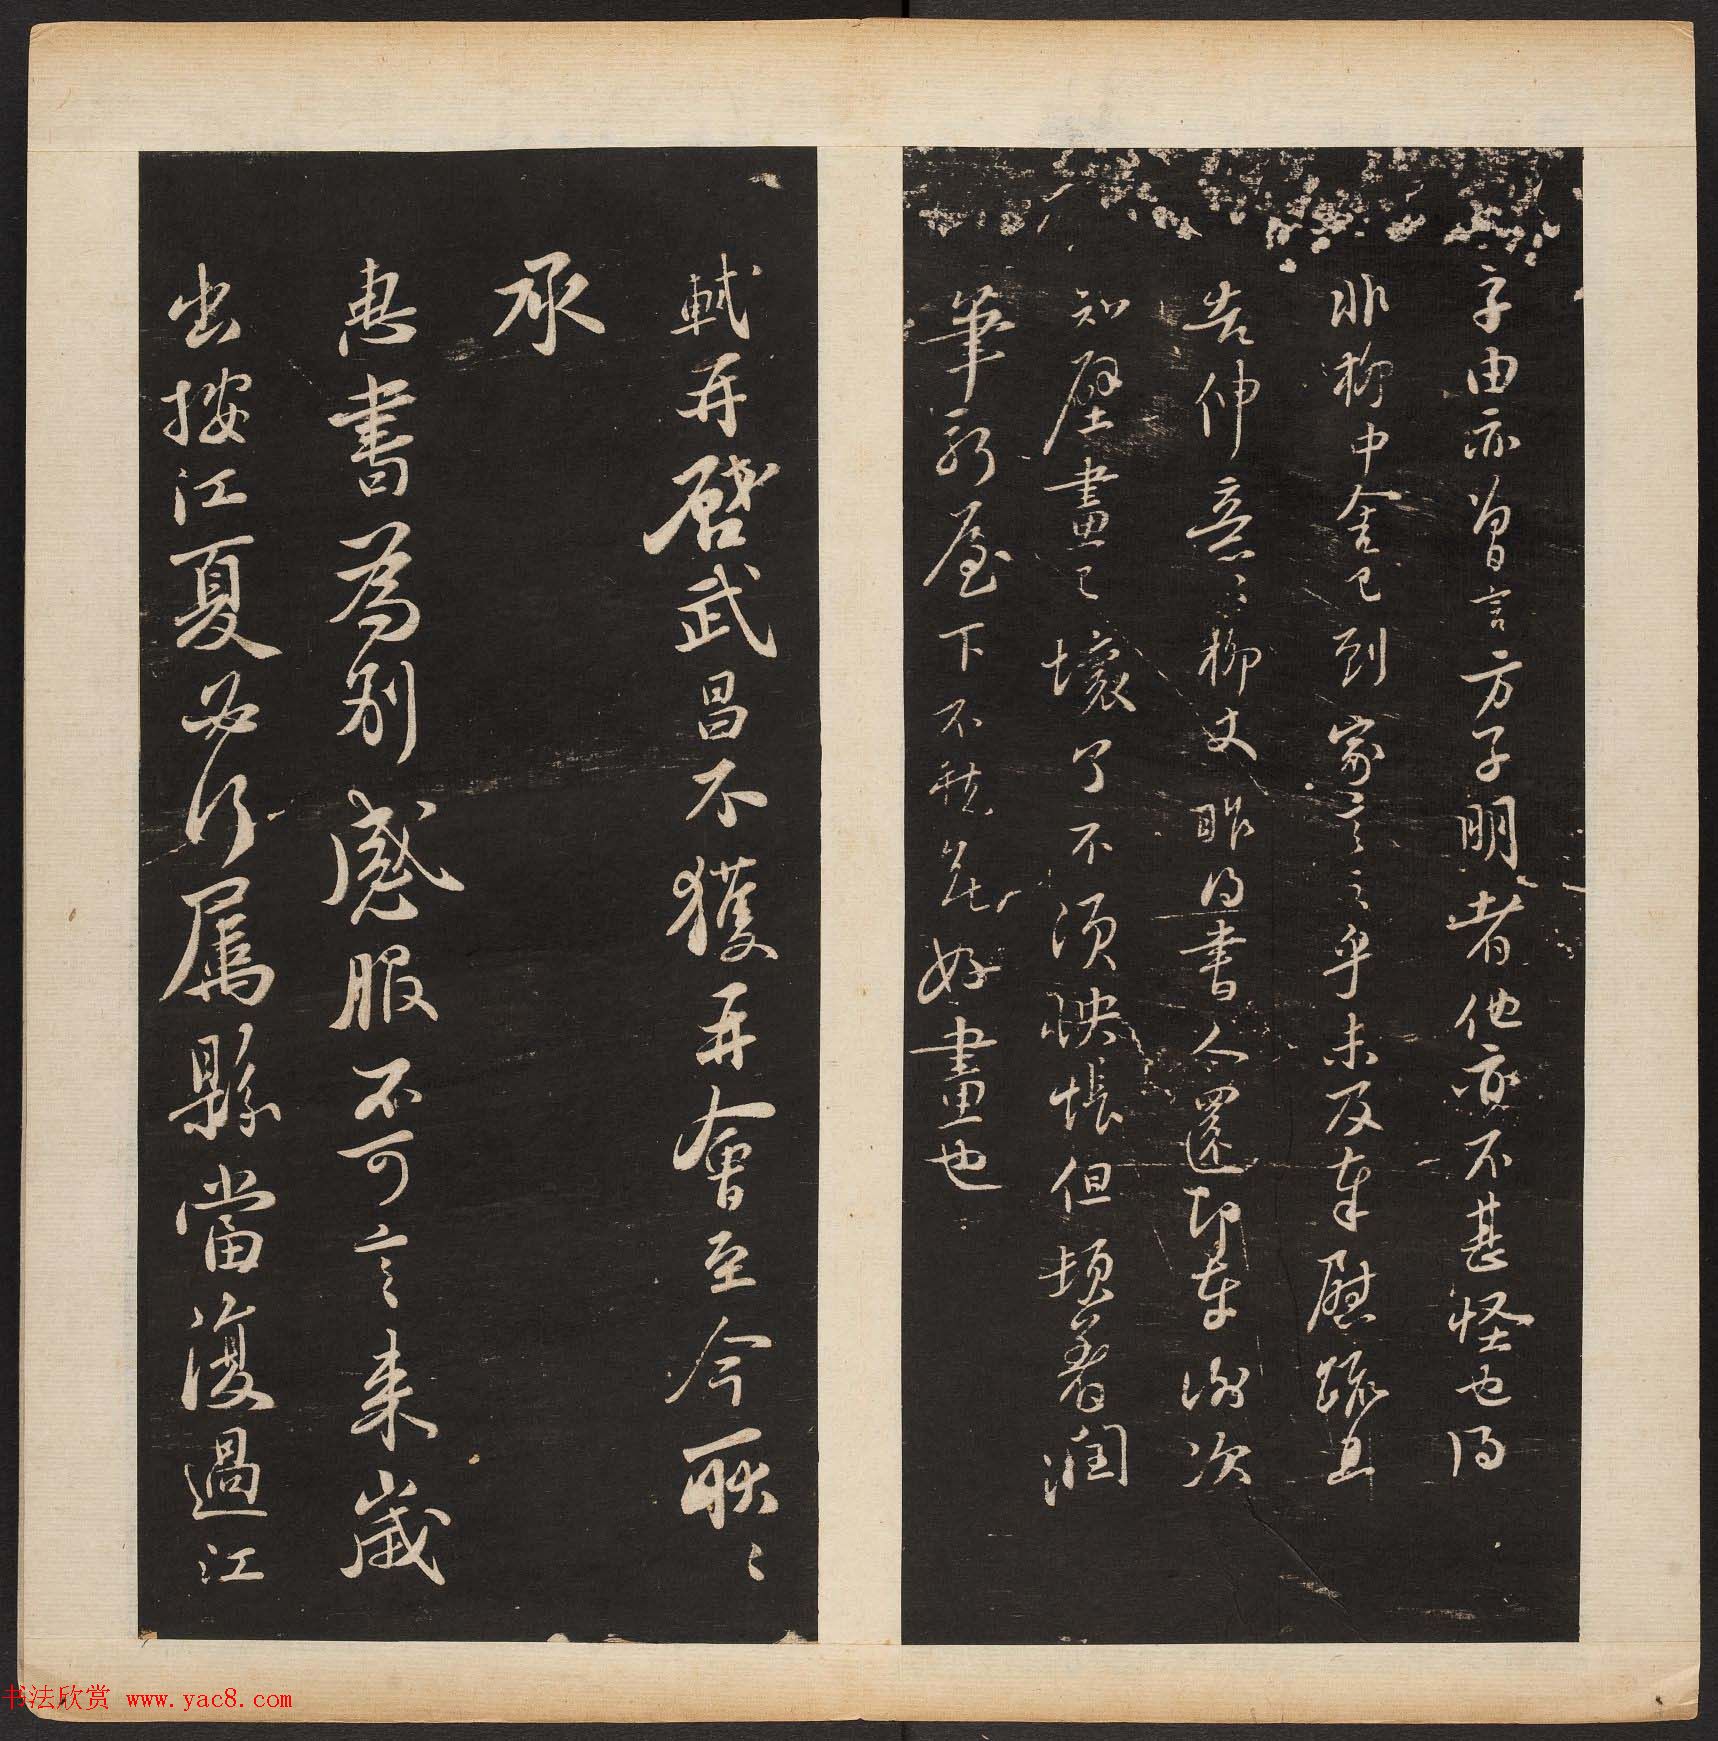 子由亦曾言方子明者他亦不甚怪也得
非柳中舍已到家言之乎未及奉慰疏且
告伸意〻柳丈昨得書人還即奉謝次
知壁畫已壞了不須怏悵但頓著潤
筆新屋下不愁無好畫也
軾再啓武昌不獲再會至今耿〻
承
惠書為別感服不可言来歲
出按江夏必行属縣當復過江
书法欣赏 www.yac8.com